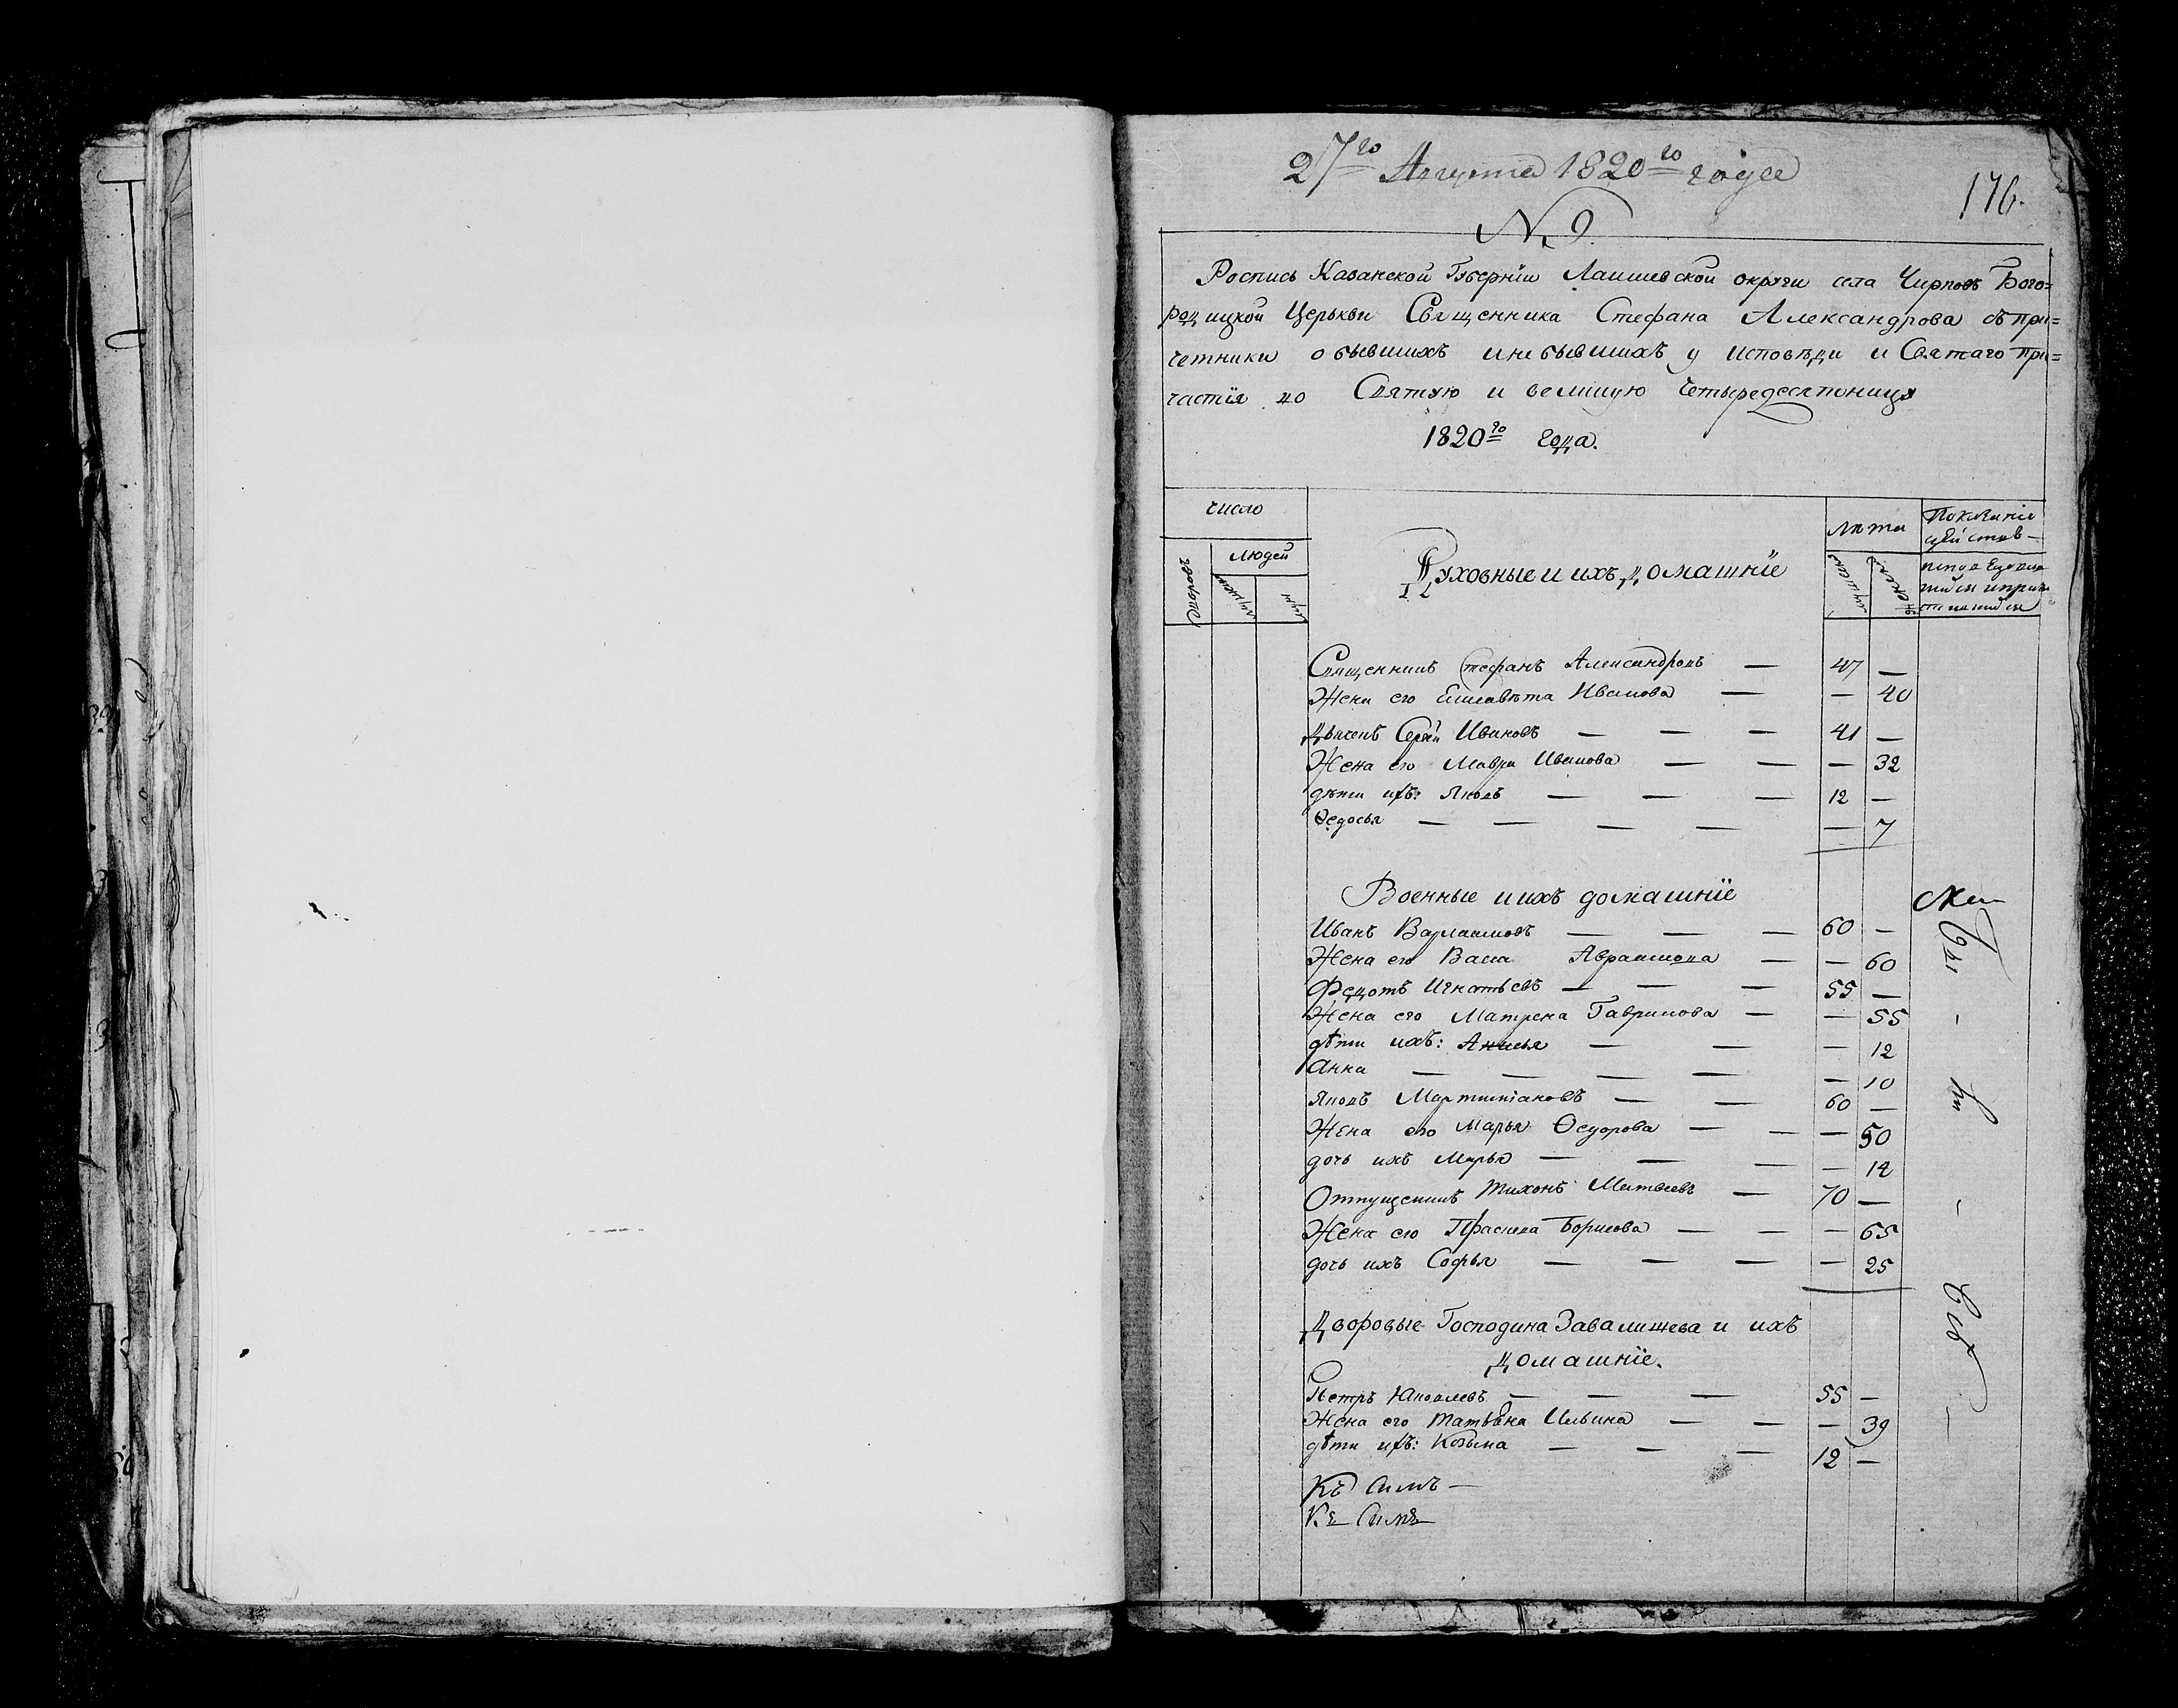 27го Августа 1820го года
176.
N. 9.
Роспись Казанской Губерніи Лаишевской округи села Чирповъ Бого=
родицкой Церькви Священника Стефана Александрова съ при=
четники о бывшихъ и не бывшихъ у исповѣди и Святаго при=
частія во Святую и великую четыредесятницу
1820го года.
число
людей
Дворовъ
Духовные и ихъ домашніе
лѣта
Священникъ Стефанъ Александровъ — 47 —
Жена его Елисавѣта Иванова — — 40
Дьяконъ Сергѣй Ивановъ — — — 41 —
Жена его Мавра Иванова — — — 32
дѣти ихъ: Яковъ — — — 12 —
Ѳедосья — — — — — 7
Военные и ихъ домашніе
Иванъ Варлаамовъ — — — 60 —
Жена его Васса Авраамова — — 60
Федотъ Игнатьевъ — — — 55 —
Жена его Матрена Гаврилова — — 55
дѣти ихъ: Анисья — — — 12
Анна — — — — — 10
Яковъ Мартиніановъ — — 60 —
Жена его Марья Ѳедорова — — — 50
дочь ихъ Марья — — — — 14
Отпущенникъ Тихонъ Матвеевъ — 70 —
Жена его Прасковья Борисова — — — 65
дочь ихъ Софья — — — — 25
Дворовые Господина Завалишева и ихъ
домашніе.
Петръ Яковлевъ — — — 55 —
Жена его Татьяна Ильина — — — 39
дѣти ихъ: Козьма — — — 12 —
Къ Симъ —